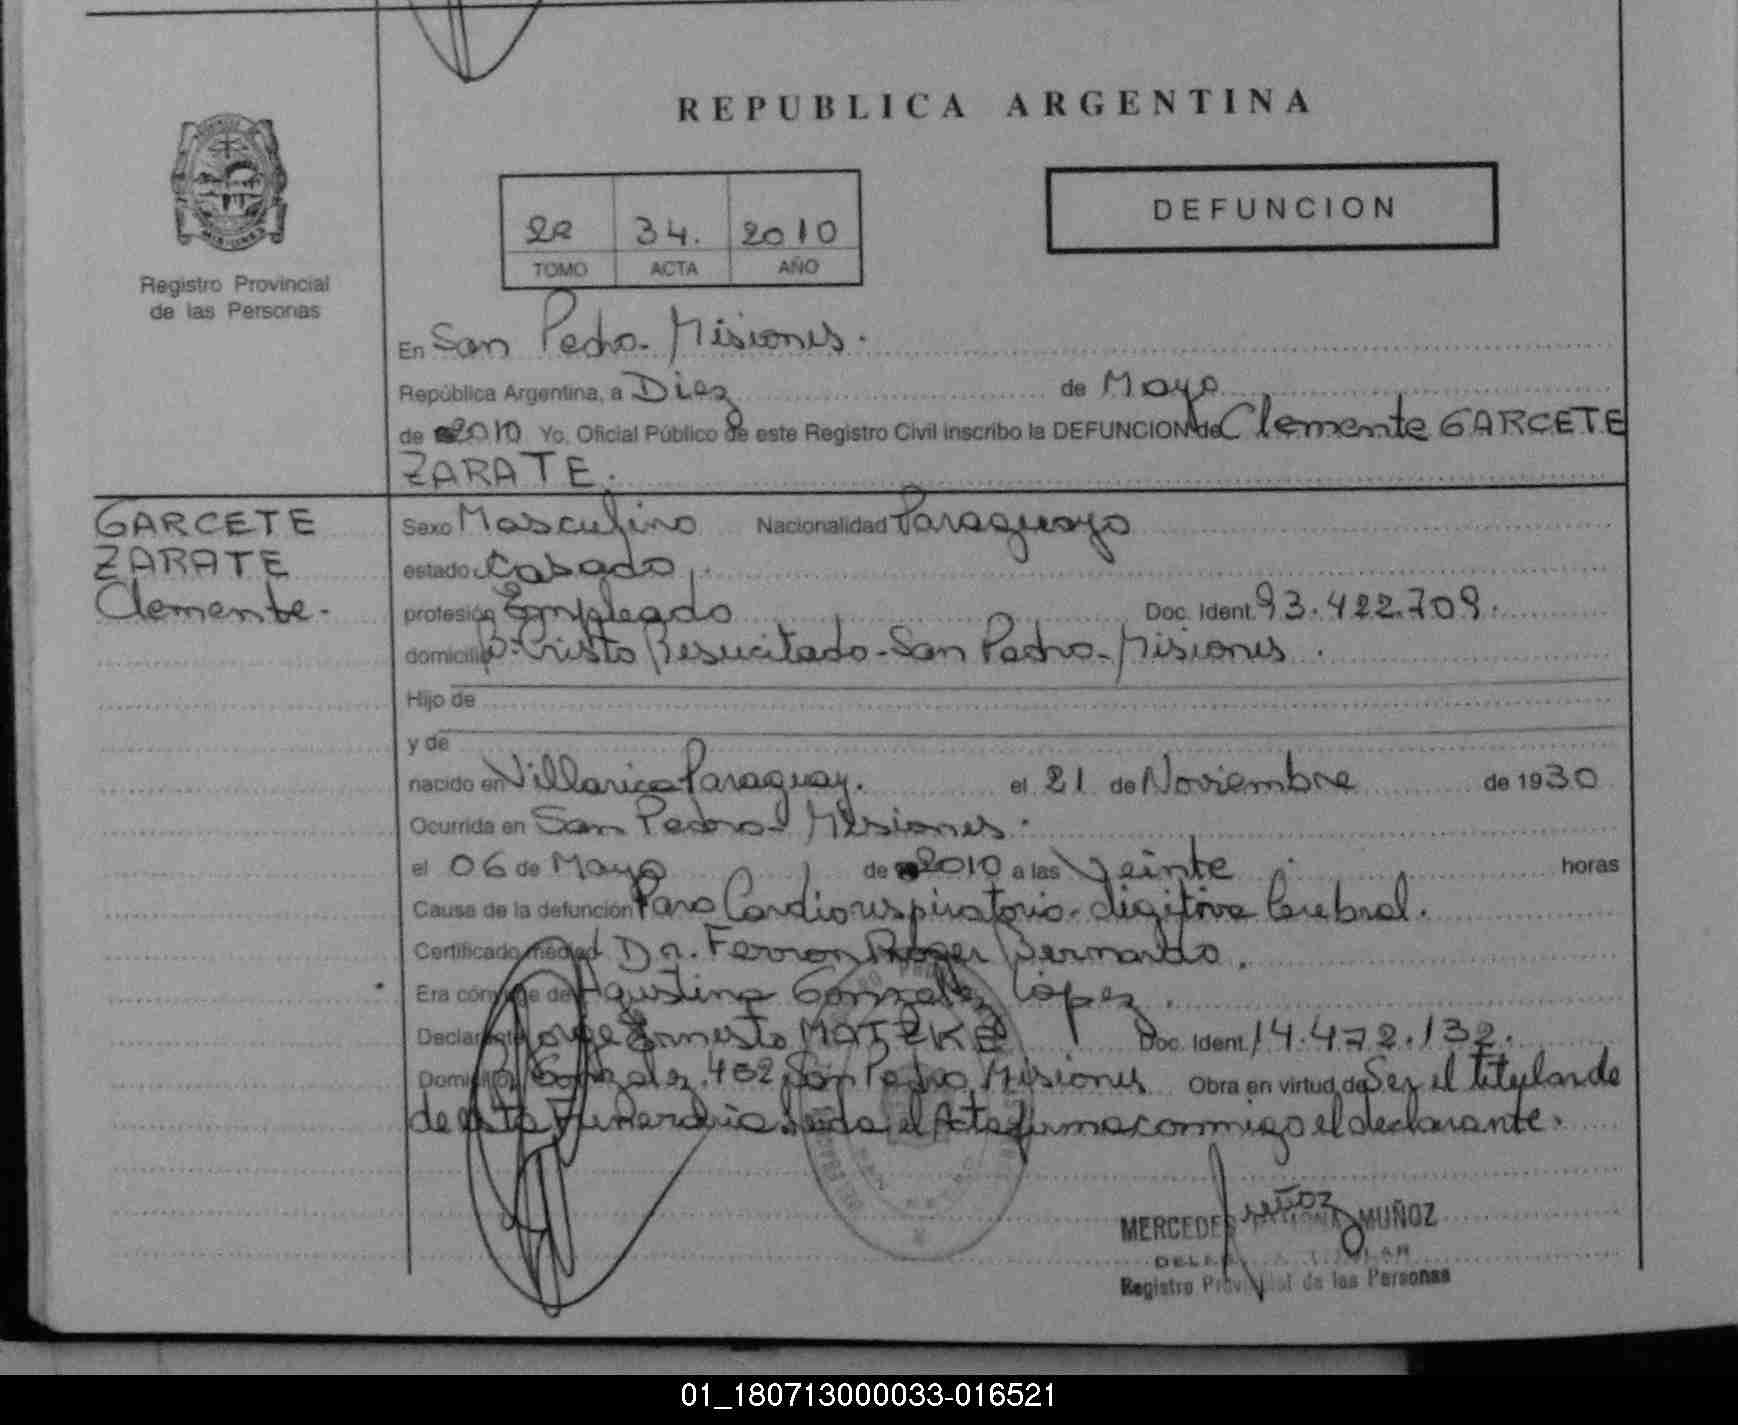 REPUBLICA ARGENTINA
2º 34. 2010
TOMO ACTA AÑO
DEFUNCION
Registro Provincial
de las Personas
En San Pedro - Misiones.
República Argentina, a Diez de Mayo
de 2010 Yo, Oficial Público de este Registro Civil inscribo la DEFUNCION de Clemente GARCETE
ZARATE.
GARCETE
ZARATE
Clemente.-
Sexo Masculino Nacionalidad Paraguayo
estado Casado
profesión Empleado Doc. Ident. 93.422.709.
domicilio Bº Cristo Resucitado - San Pedro - Misiones.
Hijo de
y de
nacido en Villarica Paraguay. el 21 de Noviembre de 1930
Ocurrida en San Pedro - Misiones.
el 06 de Mayo de 2010 a las Veinte horas
Causa de la defunción Paro Cardiorespiratorio - Cerebral.
Certificado médico Dr. Ferron Roger Bernardo.
Era cónyuge de Agustina Gonzalez López.
Declarante Jorge Ernesto MATZKE Doc. Ident. 14.472.132.
Domicilio Gonzalez 402 San Pedro Misiones Obra en virtud de Ser el titular de
de esta Funeraria. Leida el Acta firma conmigo el declarante.
Muñoz
MERCEDES RAMONA MUÑOZ
Registro Provincial de las Personas
01_180713000033-016521